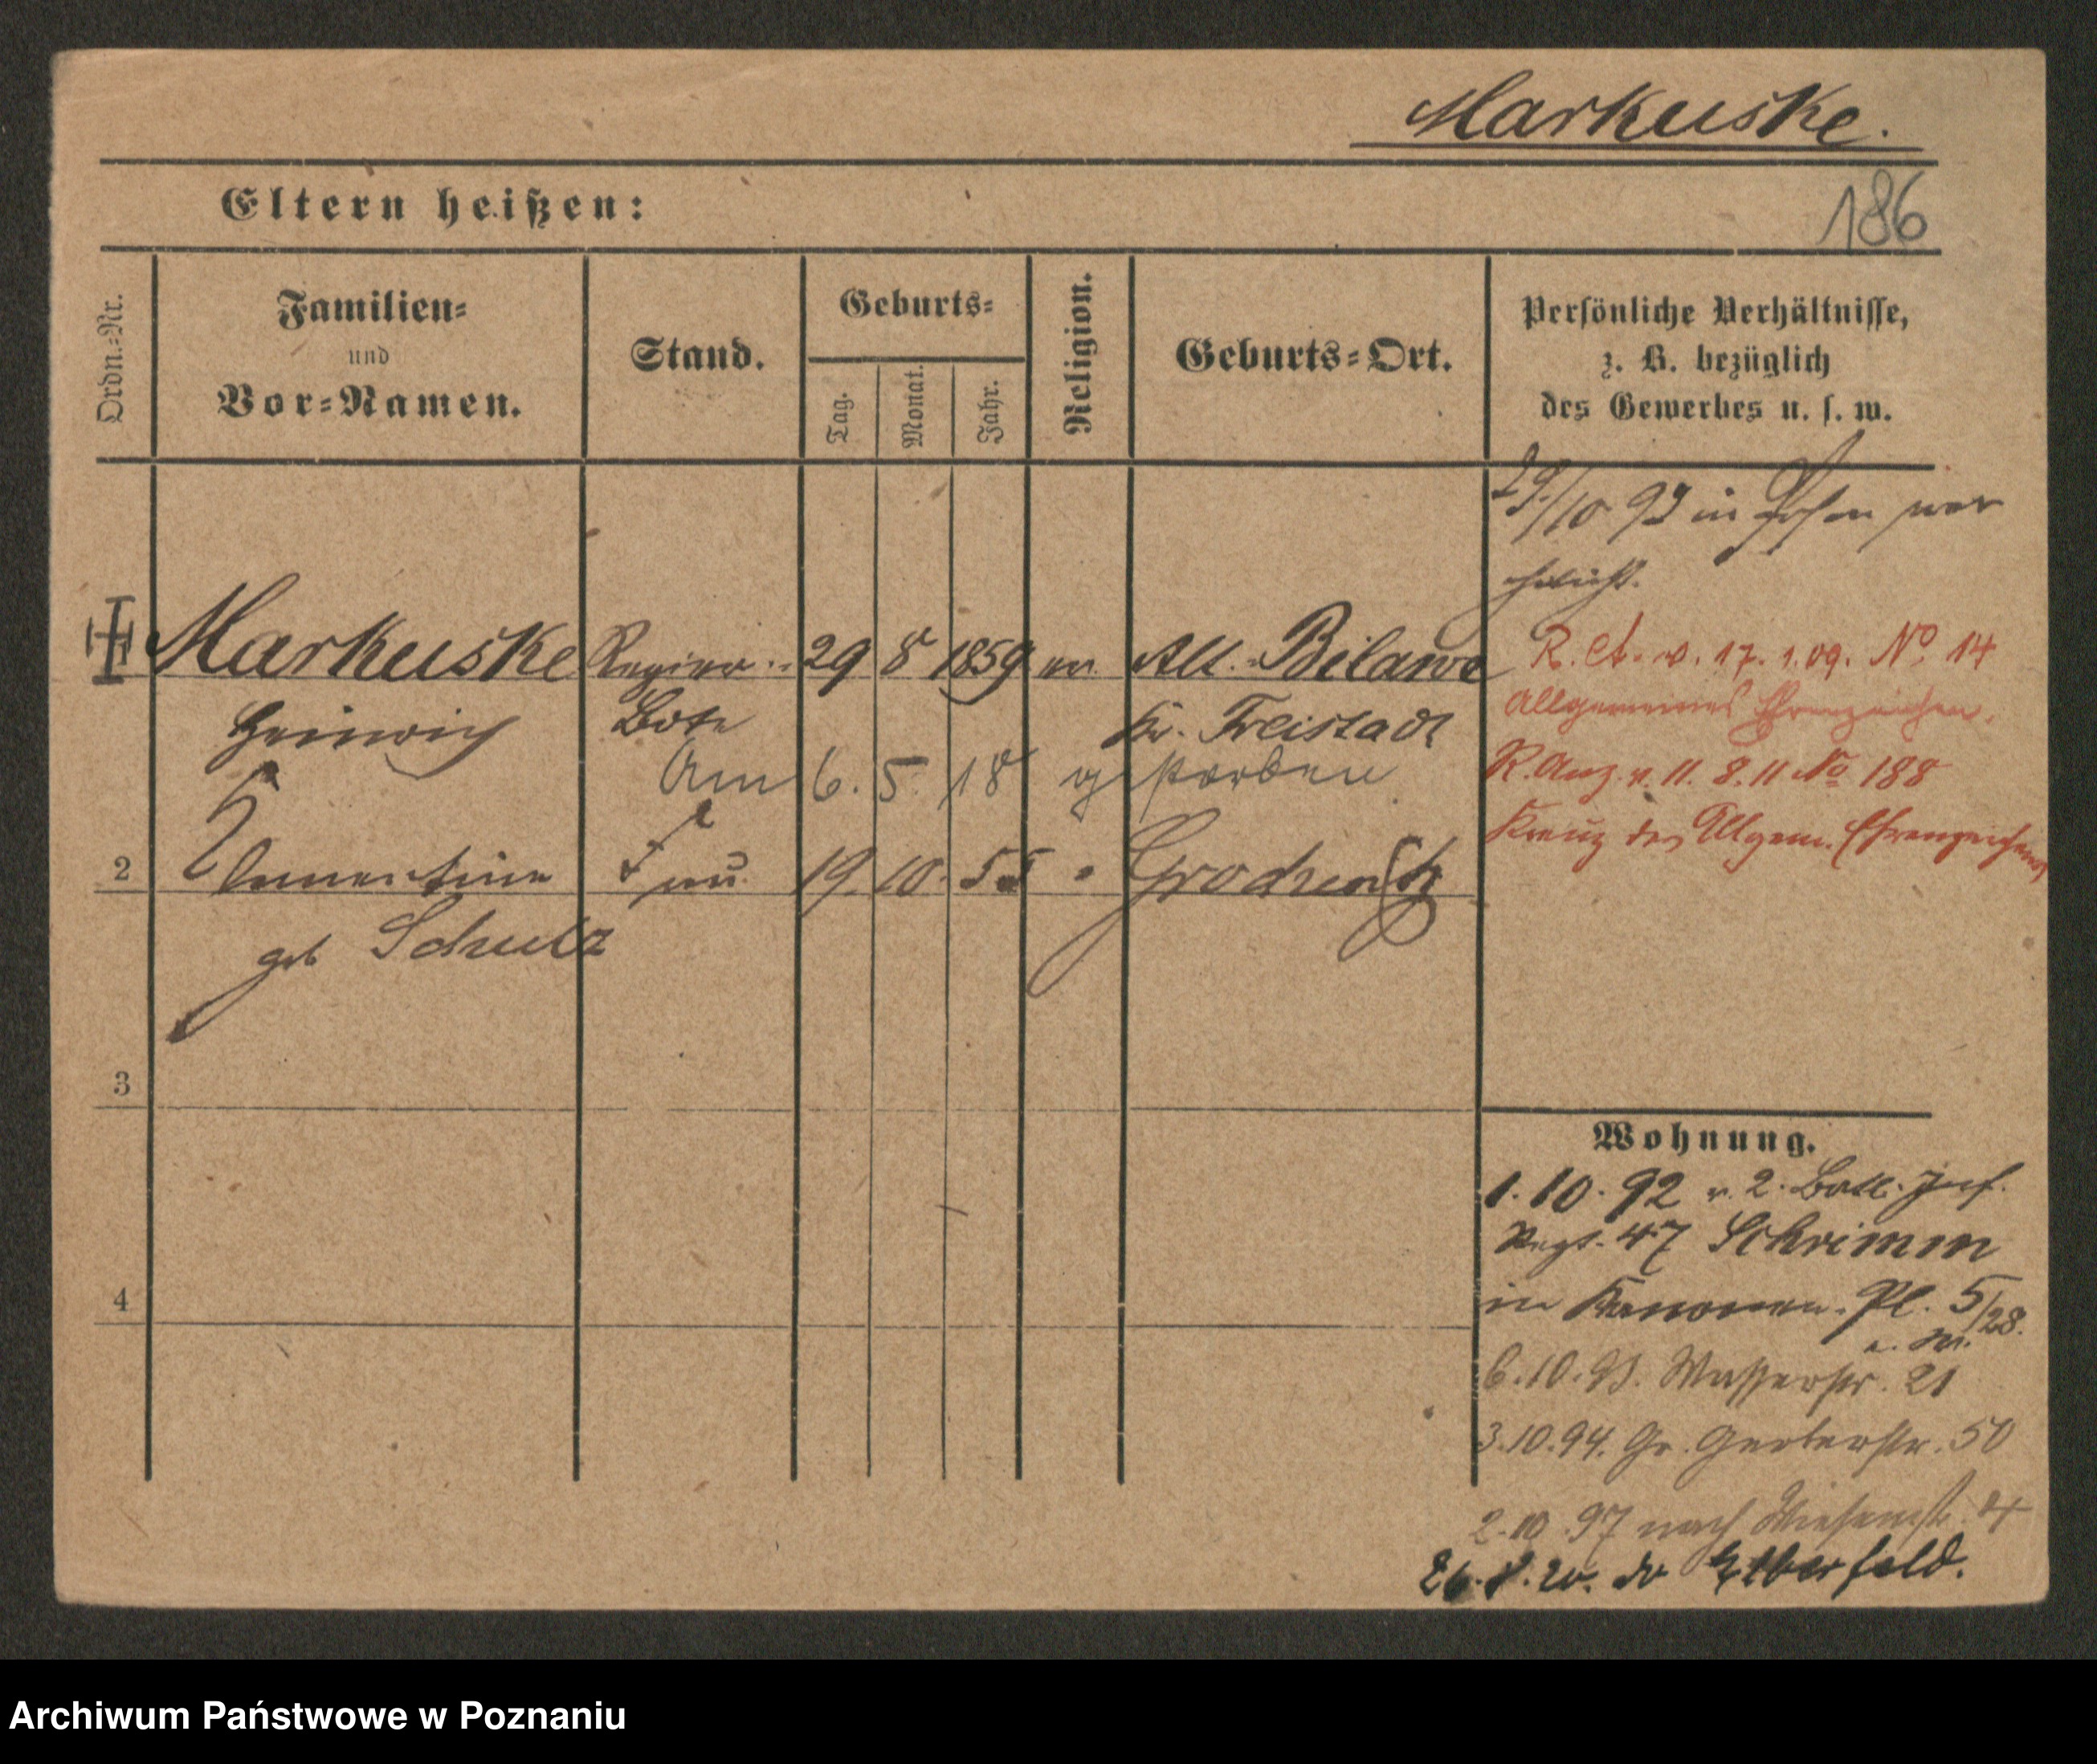 Markuske.
Eltern heißen:
186
Ordn.=Nr.
Familien=
und
Vor=Namen.
Stand.
Geburts=
Tag.
Monat.
Jahr.
Religion.
Geburts=Ort.
Persönliche Verhältnisse,
z. B. bezüglich
des Gewerbes u. s. w.
29/10 93 in Posen ver
ehelicht.
Markuske Regier.= 29 8 1859 ev. Alt.=Bilawe
Heinrich Bote Kr. Freistadt
Am 6. 5. 18 gestorben.
R. A. v. 17. 1. 09. No 14
Allgemeines Ehrenzeichen.
R. Anz. v. 11. 8. 11 No 188
Kreuz des Allgem. Ehrenzeichens
2 Ernestine Frau 19. 10. 55 "
geb Schulz
3
4
Wohnung.
1. 10. 92 v. 2. Batl. Inf.
Regt. 47 Schrimm
in Kanonen. Pl. 5/28.
6. 10. 93. Wasserstr. 21
3. 10. 94. Gr. Gerberstr. 50
2. 10. 97 nach Wiesenstr. 4
26. 8. 20. do Elberfeld.
Archiwum Państwowe w Poznaniu